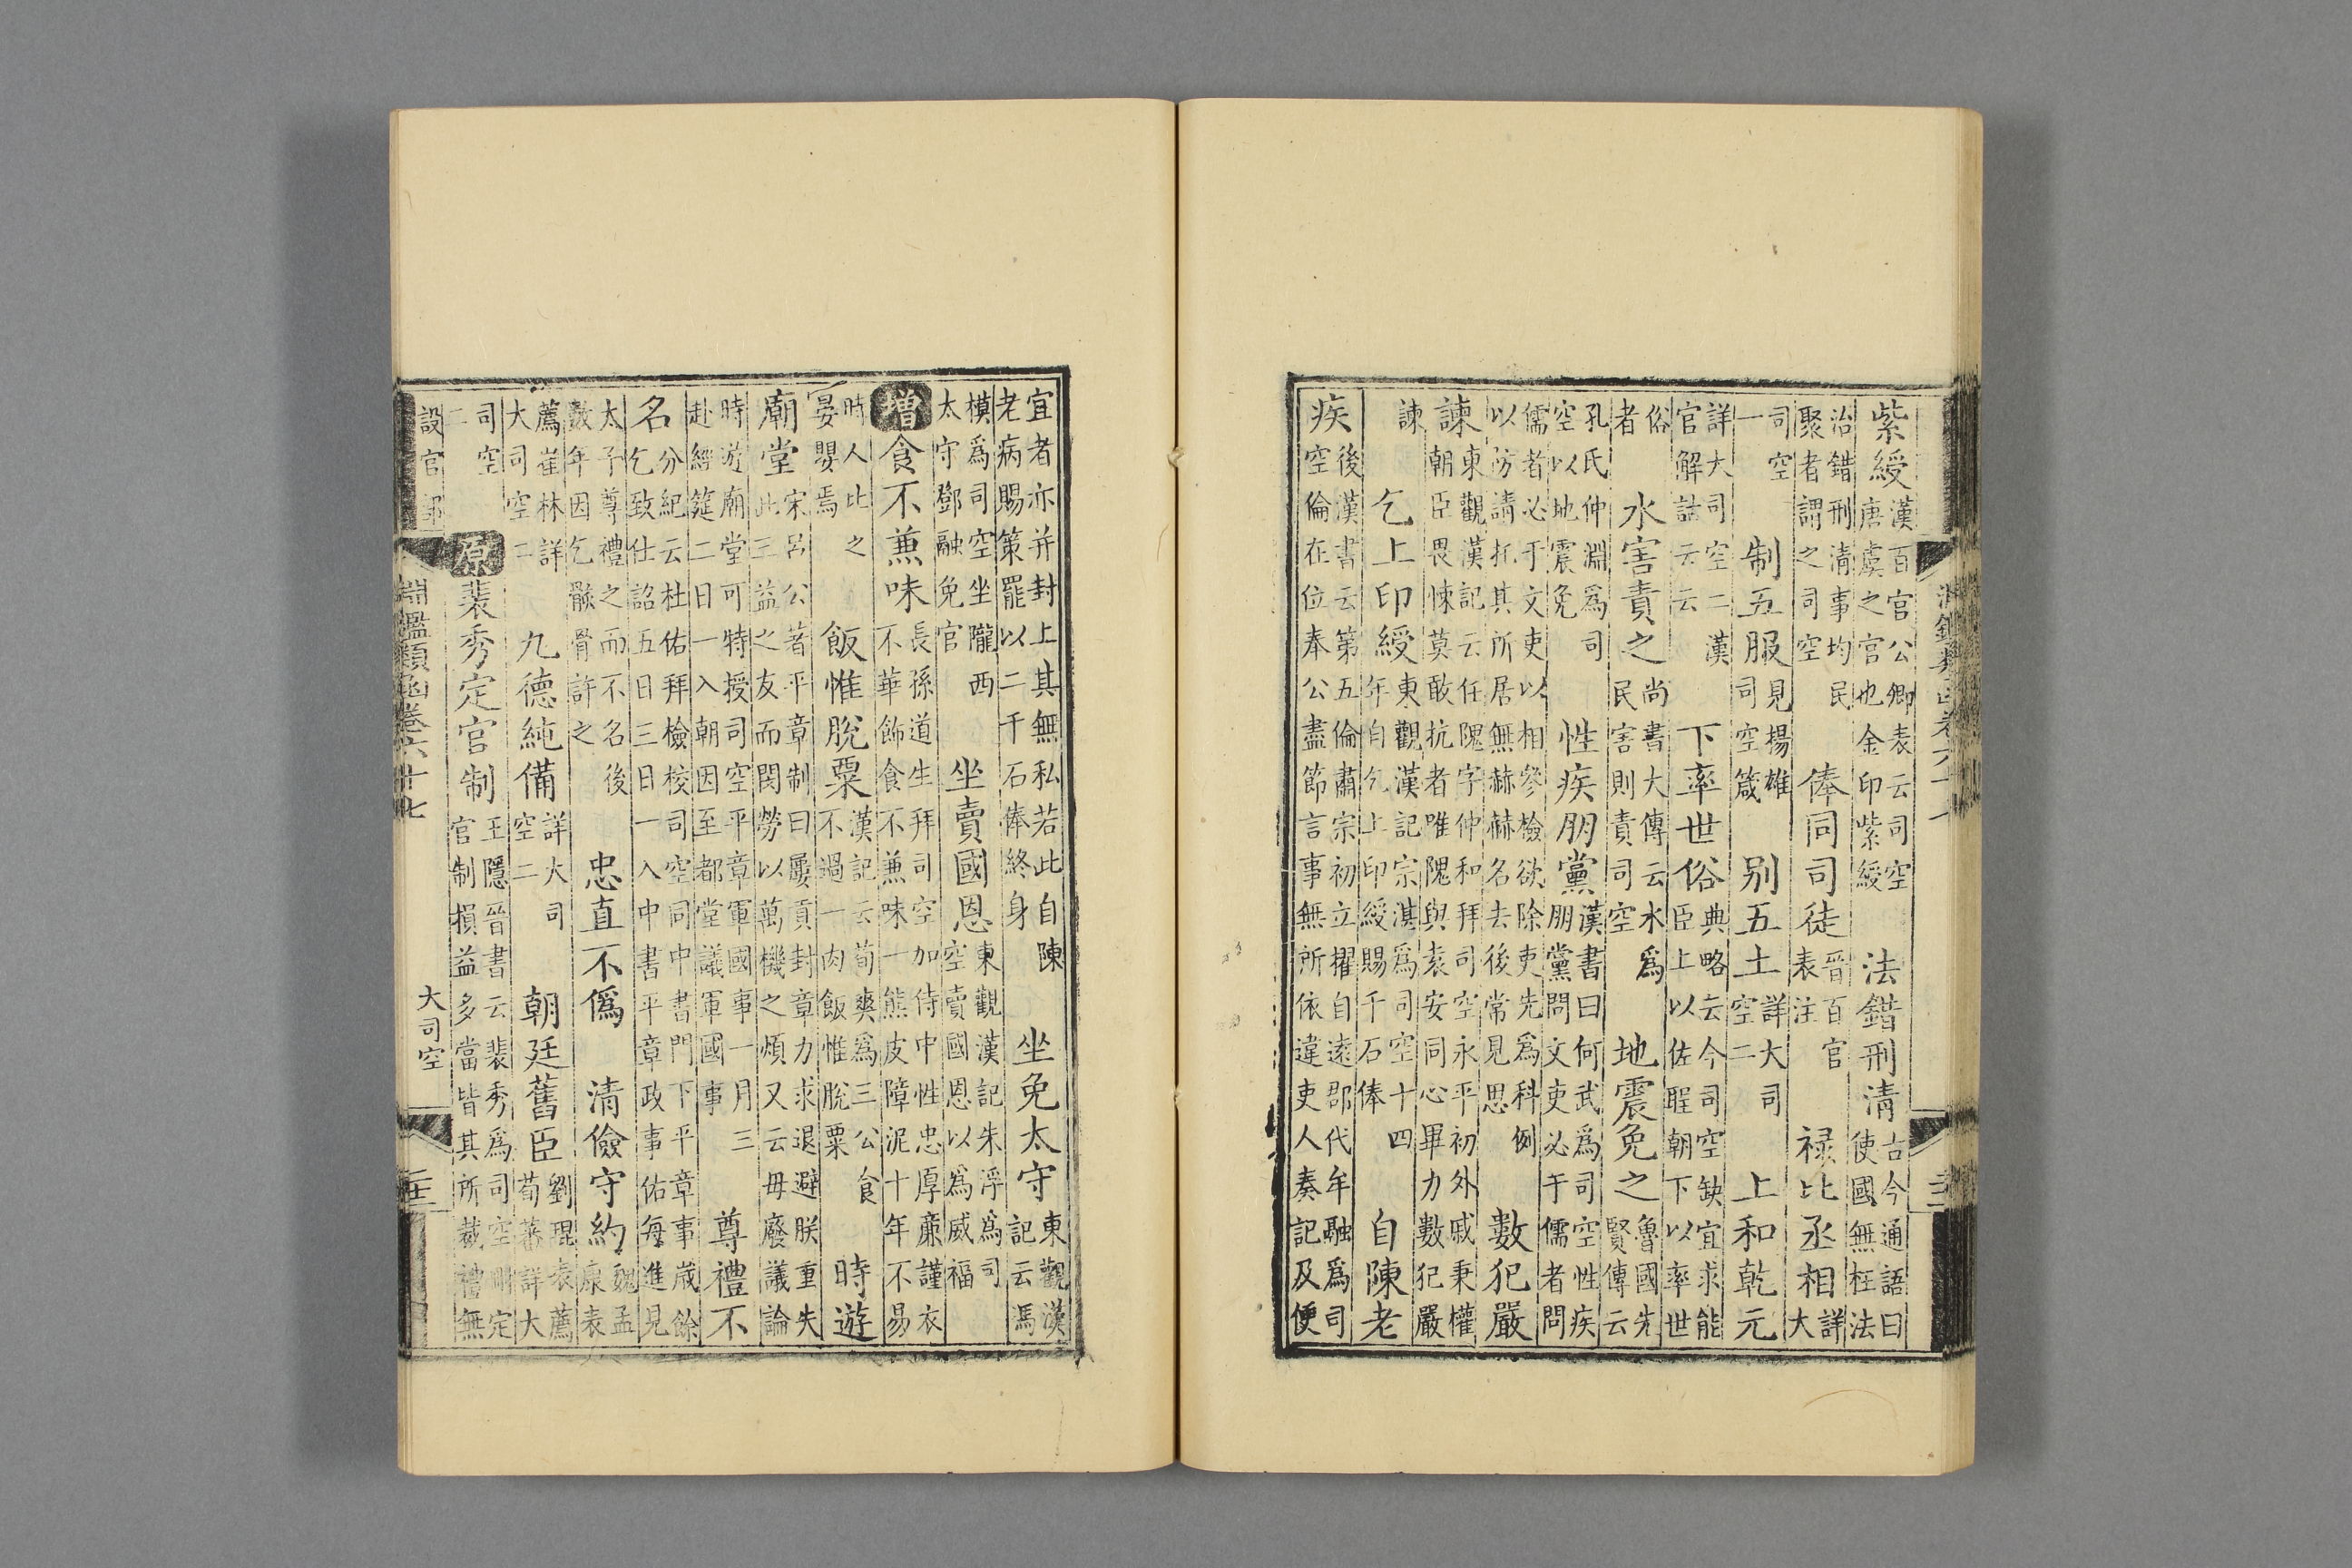 紫綬漢百官公卿表云司空唐虞之官也金印紫綬 法錯刑清古今通語曰使國無枉法
治錯刑清事均民聚者謂之司空 俸同司徒晉百官表注 祿比丞相詳大
司空一 制五服見楊雄司空箴 别五土詳大司空二 上和乾元
詳大司空二漢官解詁云云 下率世俗典略云今司空缺宜求能臣上以佐聖朝下以率世
俗者 水害責之尚書大傳云水爲民害則責司空 地震免之魯國先賢傳云
孔氏仲淵爲司空以地震免 性疾朋黨漢書曰何武爲司空性疾朋黨問文吏必于儒者問
儒者必于文吏以相參檢欲除吏先爲科例以防請托其所居無赫赫名去後常見思 數犯嚴
諫東觀漢記云任隗字仲和拜司空永平初外戚秉權朝臣畏悚莫敢抗者唯隗與袁安同心畢力數犯嚴
諫 乞上印綬東觀漢記宗淇爲司空十四年自乞上印綬賜千石俸 自陳老
疾後漢書云第五倫肅宗初立擢自遠郡代牟融爲司空倫在位奉公盡節言事無所依違吏人奏記及便
宜者亦并封上其無私若此自陳老病賜策罷以二千石俸終身 坐免太守東觀漢記云馮
模爲司空坐隴西太守鄧融免官 坐賣國恩東觀漢記朱浮爲司空賣國恩以爲威福
增食不兼味長孫道生拜司空加侍中性忠厚廉謹衣不華飾食不兼味一熊皮障泥十年不易
時人比之晏嬰焉 飯惟脫粟漢記云荀爽爲三公食不過一肉飯惟脫粟 時遊
廟堂宋呂公著平章制曰屢貢封章力求退避朕重失此三益之友而閔勞以萬機之煩又云毋廢議論
時遊廟堂可特授司空平章軍國事一月三赴經筵二日一入朝因至都堂議軍國事 尊禮不
名分紀云杜佑拜檢校司空同中書門下平章事歲餘乞致仕詔五日三日一入中書平章政事佑每進見
太子尊禮之而不名後數年因乞骸骨許之 忠直不僞 清儉守約魏孟康表
薦崔林詳大司空二 九德純備詳大司空二 朝廷舊臣劉琨表薦荀蕃詳大
司空二 原裴秀定官制王隱晉書云裴秀爲司空刪定官制損益多當皆其所裁禮無
設官部 淵鑑類函卷六十七 大司空